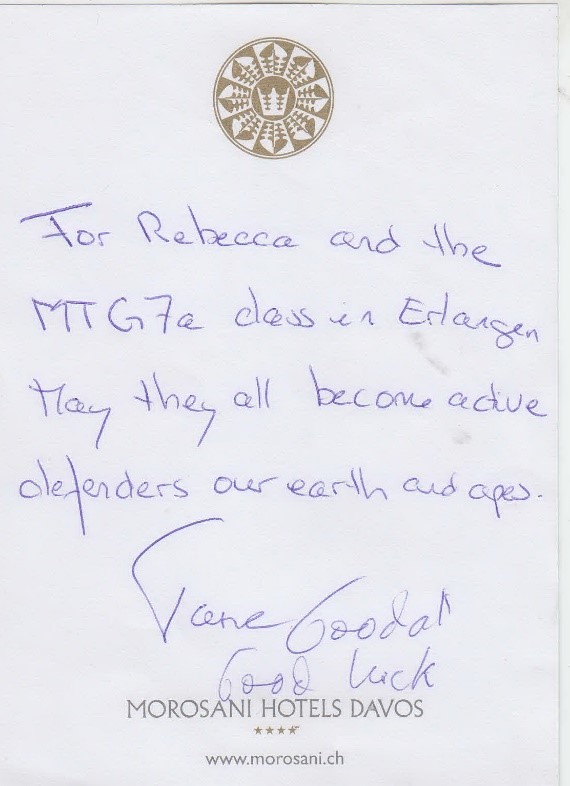 For Rebecca and the
MTG7a class in Erlangen
May they all become active
defenders our earth and apes.
Jane Goodall
Good Luck
MOROSANI HOTELS DAVOS
www.morosani.ch